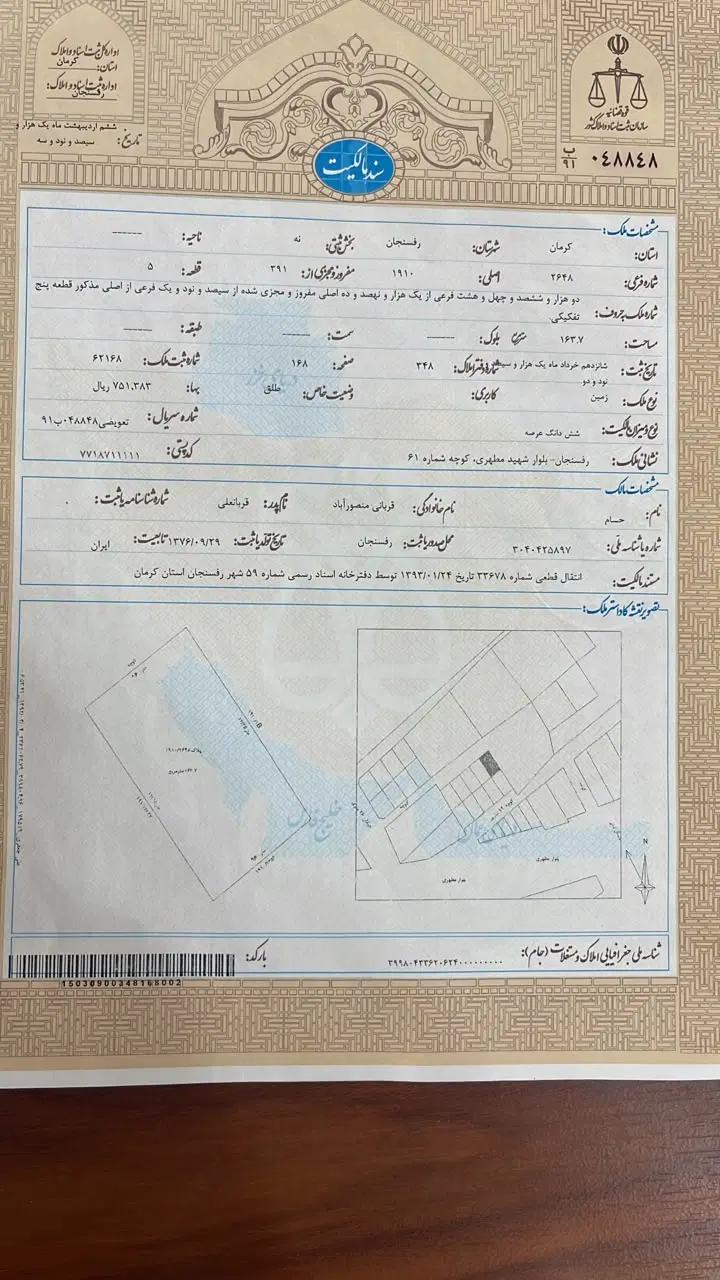 اداره کل ثبت اسناد و املاک
استان: کرمان
اداره ثبت اسناد و املاک:
رفسنجان
تاریخ: ششم اردیبهشت ماه یک هزار و
سیصد و نود و سه
قوه قضائیه
سازمان ثبت اسناد و املاک کشور
ب
۹۱ ۰۴۸۸۴۸
سند مالکیت
مشخصات ملک:
استان: کرمان شهرستان: رفسنجان بخش ثبتی: نه ناحیه: ------
شماره فرعی: ۲۶۴۸ اصلی: ۱۹۱۰ مفروز و مجزی از: ۳۹۱ قطعه: ۵
شماره ملک بحروف: دو هزار و ششصد و چهل و هشت فرعی از یک هزار و نهصد و ده اصلی مفروز و مجزی شده از سیصد و نود و یک فرعی از اصلی مذکور قطعه پنج
تفکیکی.
مساحت: ۱۶۳.۷ مترمربع بلوک: ------ سمت: ------ طبقه: ------
تاریخ ثبت: شانزدهم خرداد ماه یک هزار و سیصد و شماره دفتر املاک: ۳۴۸ صفحه: ۱۶۸ شماره ثبت ملک: ۶۲۱۶۸
نود و دو
نوع ملک: زمین کاربری: وضعیت خاص: طلق بها: ۷۵۱,۳۸۳ ریال
نوع و میزان مالکیت: شش دانگ عرصه شماره سریال: تعویضی۰۴۸۸۴۸ب۹۱
نشانی ملک: رفسنجان- بلوار شهید مطهری، کوچه شماره ۶۱ کد پستی: ۷۷۱۸۷۱۱۱۱۱
مشخصات مالک
نام: حسام نام خانوادگی: قربانی منصورآباد نام پدر: قربانعلی شماره شناسنامه یا ثبت: .
شماره یا شناسه ملی: ۳۰۴۰۴۲۵۸۹۷ محل صدور یا ثبت: رفسنجان تاریخ تولد یا ثبت: ۱۳۷۶/۰۹/۲۹ تابعیت: ایران
مستند مالکیت: انتقال قطعی شماره ۳۳۶۷۸ تاریخ ۱۳۹۳/۰۱/۲۴ توسط دفترخانه اسناد رسمی شماره ۵۹ شهر رفسنجان استان کرمان
تصویر نقشه کاداستر ملک:
خلیج فارس
کوچه
بلوار مطهری
بلوار مطهری
N
شناسه ملی جغرافیایی املاک و مستغلات (جام): ۳۹۹۸۰۴۳۳۶۲۰۶۲۴۰۰۰۰۰۰۰۰۰۰
بارکد:
15030900348168002